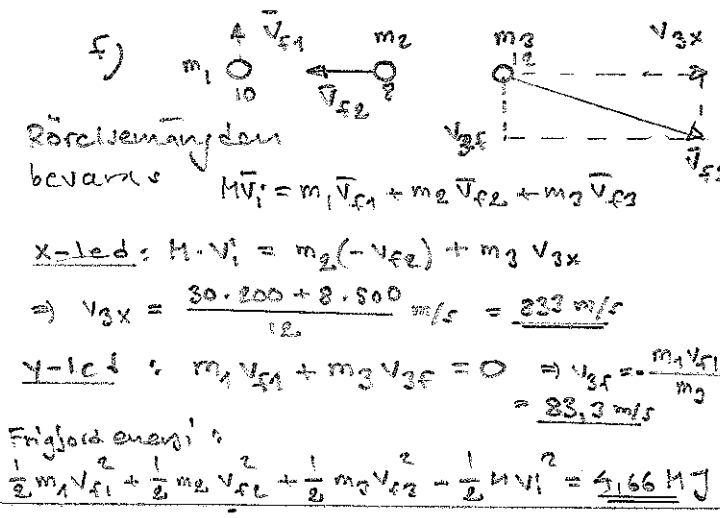 f) V̄f1 m1 10 m2 8 V̄f2 m3 12 V3x V3f V̄f3
Rörelsemängden
bevaras MV̄i = m1 V̄f1 + m2 V̄f2 + m3 V̄f3
x-led: M·Vi = m2(-vf2) + m3 V3x
⇒ V3x = (30·200 + 8·500)/12 m/s = 833 m/s
y-led: m1 vf1 + m3 v3f = 0 ⇒ v3f = -m1 vf1/m3
= 83,3 m/s
Frigjord energi:
½ m1 vf1² + ½ m2 vf2² + ½ m3 vf3² - ½ M vi² = 4,66 MJ